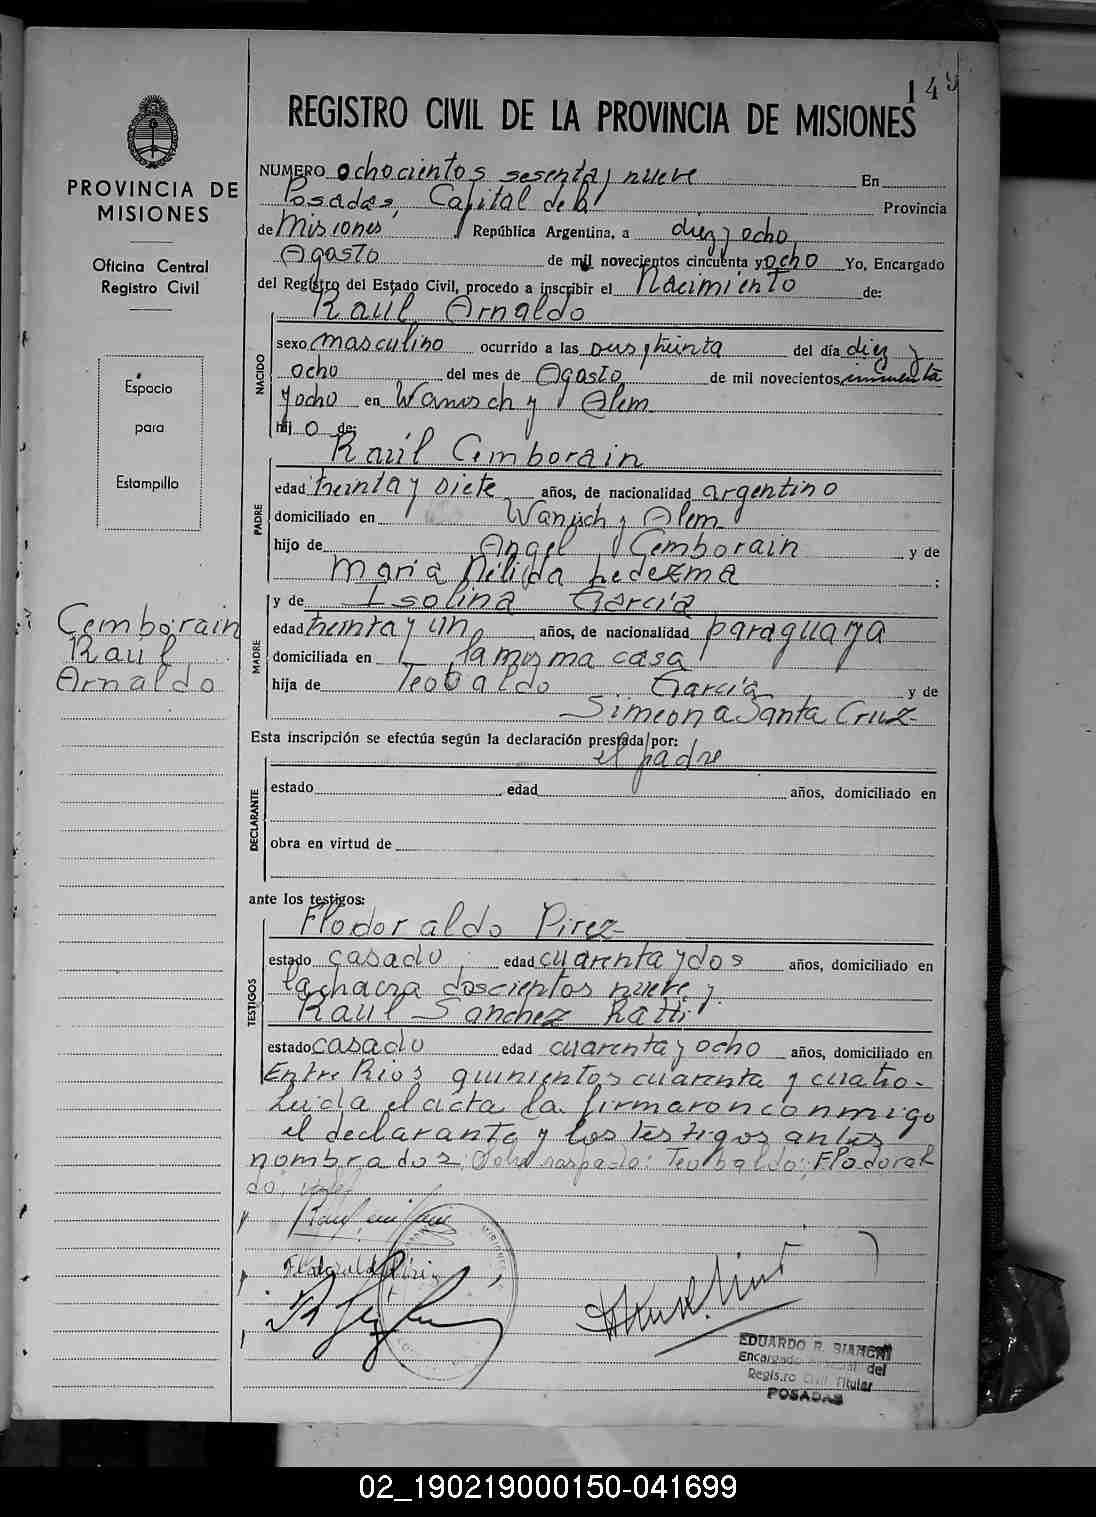 149
REGISTRO CIVIL DE LA PROVINCIA DE MISIONES
PROVINCIA DE
MISIONES
Oficina Central
Registro Civil
Espacio
para
Estampillo
Cemborain
Raúl
Arnaldo
NUMERO ochocientos sesenta y nueve En
Posadas, Capital de la Provincia
de Misiones República Argentina, a diez y ocho,
Agosto de mil novecientos cincuenta y ocho Yo, Encargado
del Registro del Estado Civil, procedo a inscribir el Nacimiento de:
Raúl Arnaldo
NACIDO
sexo masculino ocurrido a las y treinta del día diez y
ocho del mes de Agosto de mil novecientos cincuenta
y ocho en y Alem
hijo de:
Raúl Cemborain
PADRE
edad treinta y siete años, de nacionalidad argentino
domiciliado en y Alem
hijo de Angel Cemborain y de
Maria Nélida Ledezma ;
y de Isolina García
MADRE
edad treinta y un años, de nacionalidad paraguaya
domiciliada en la misma casa
hija de Teobaldo García y de
Simeona Santa Cruz
Esta inscripción se efectúa según la declaración prestada por:
el padre
DECLARANTE
estado edad años, domiciliado en
obra en virtud de
ante los testigos:
Flodoraldo Pirez
TESTIGOS
estado casado, edad cuarenta y dos años, domiciliado en
la chacra doscientos nueve y
Raúl Sanchez Ratti
estado casado edad cuarenta y ocho años, domiciliado en
Entre Rios quinientos cuarenta y cuatro-
Leida el acta la firmaron conmigo
el declarante y los testigos antes
nombrados raspado: Teobaldo: Flodoral
do,
EDUARDO R. BIANCHI
Encargado del
Registro Civil Titular
POSADAS
02_190219000150-041699